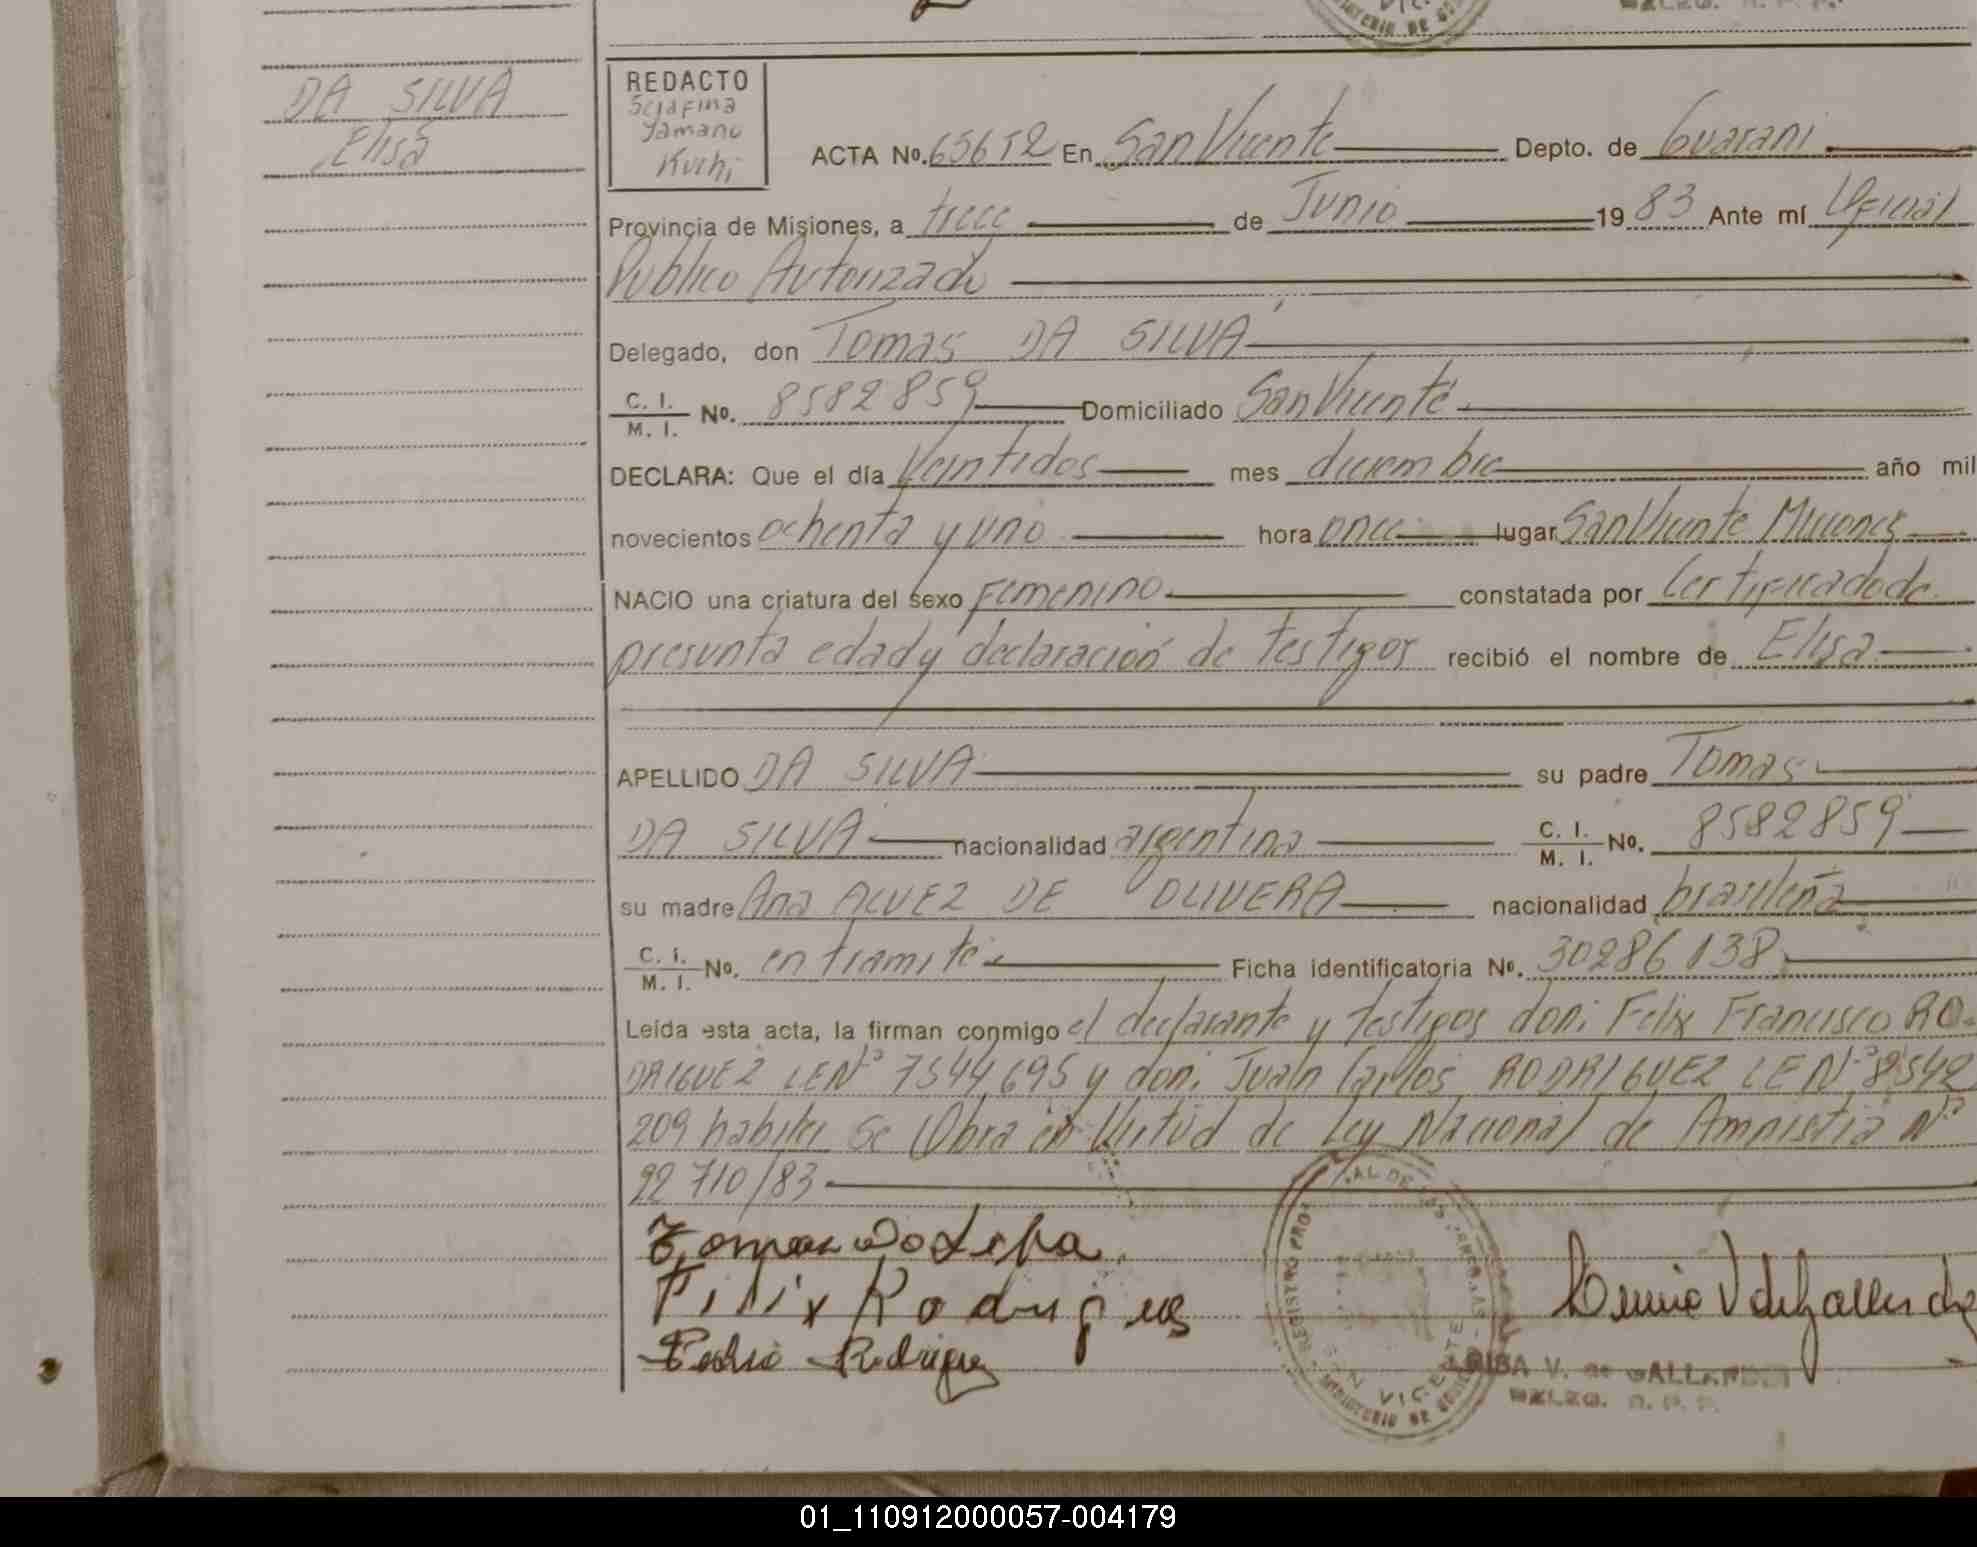 DA SILVA
Elisa
REDACTO
Serafina
Yamano
Kuchi
ACTA No. 65652 En San Vicente Depto. de Guarani
Provincia de Misiones, a trece de Junio 1983 Ante mí Oficial
Publico Autorizado
Delegado, don Tomas DA SILVA
C. I.
M. I. No. 8582859 Domiciliado San Vicente
DECLARA: Que el día Veintidos mes diciembre año mil
novecientos ochenta y uno hora once lugar San Vicente Misiones
NACIO una criatura del sexo Femenino constatada por Certificado de
presunta edad y declaración de testigos recibió el nombre de Elisa
APELLIDO DA SILVA su padre Tomas
DA SILVA nacionalidad argentina C. I.
M. I. No. 8582859
su madre Ana ALVEZ DE OLIVERA nacionalidad brasileña
C. I.
M. I. No. en tramite Ficha identificatoria No. 30286138
Leída esta acta, la firman conmigo el declarante y testigos don: Felix Francisco RO-
DRIGUEZ LE Nº 7544695 y don: Juan Carlos RODRIGUEZ LE Nº 8542
209 habiles Se Obra en Virtud de Ley Nacional de Amnistia Nº
22 710/83
Felix Rodrigues
Pedro Rodriguez
REGISTRO
SAN VICENTE
MINISTERIO DE
V. de GALLARDO
01_110912000057-004179